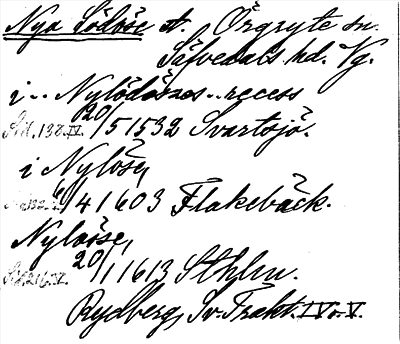 Nya Lödöse st. Örgryte sn.
Säfvedals hd. Vg.
i "Nylödöses" recess
Sid. 138. IV. 20/5 1532 Svartsjö.
i Nylöse,
6/4 1603 Flakebäck.
Nylöse,
Sid. 216. V. 20/1 1613 Sthlm.
Rydberg, Sv. Trakt. IV o. V.